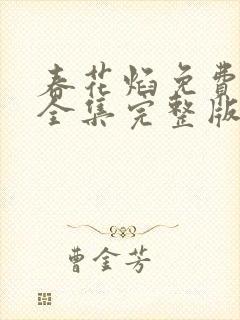 春花焰免费
全集完整版
曹金芳